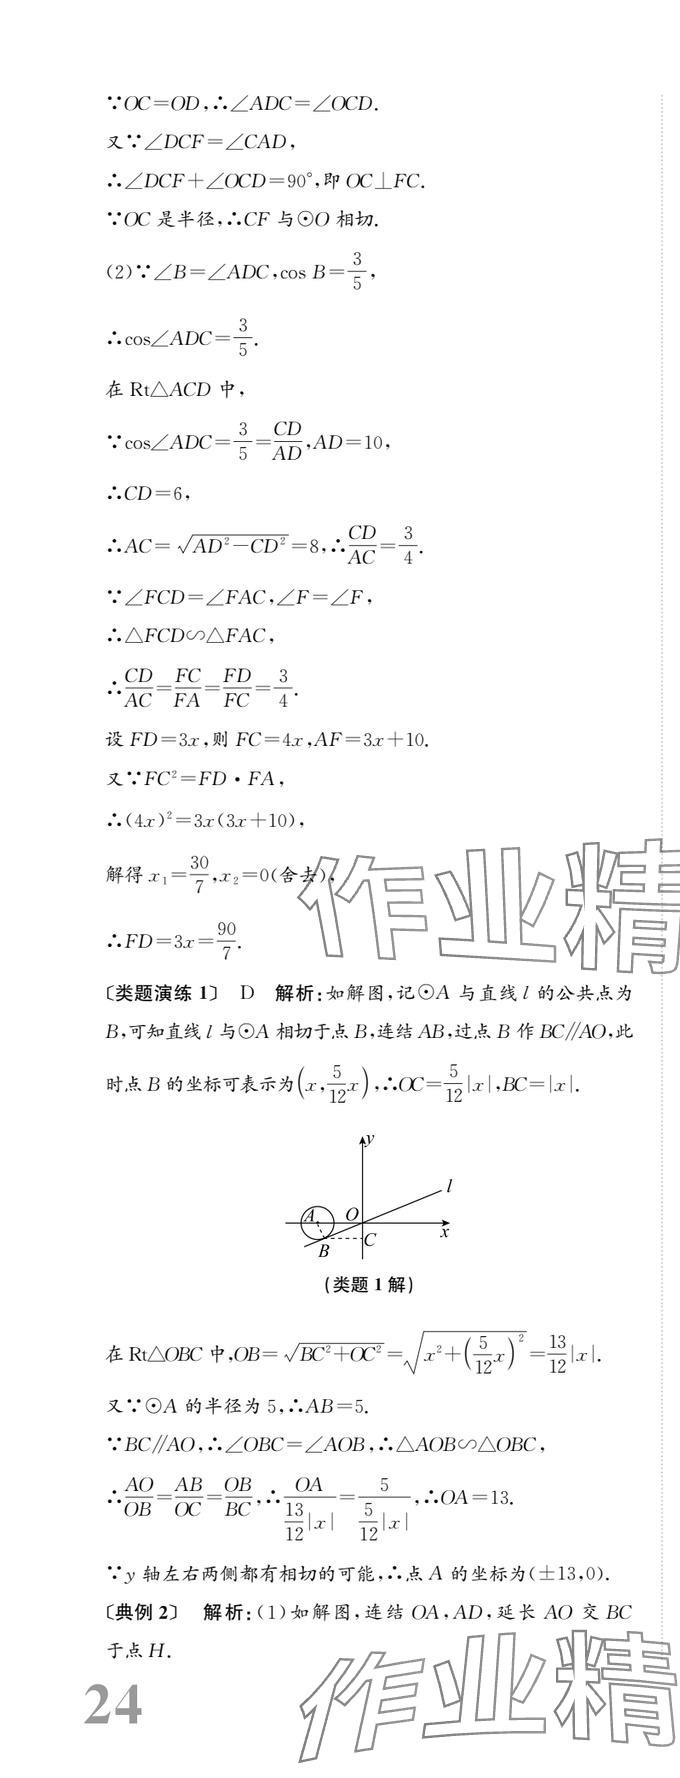 ∵OC=OD,∴∠ADC=∠OCD.
又∵∠DCF=∠CAD,
∴∠DCF+∠OCD=90°,即OC⊥FC.
∵OC是半径,∴CF与⊙O相切.
(2)∵∠B=∠ADC,cos B=3/5,
∴cos∠ADC=3/5.
在Rt△ACD中,
∵cos∠ADC=3/5=CD/AD,AD=10,
∴CD=6,
∴AC=√(AD²-CD²)=8,∴CD/AC=3/4.
∵∠FCD=∠FAC,∠F=∠F,
∴△FCD∽△FAC,
∴CD/AC=FC/FA=FD/FC=3/4.
设FD=3x,则FC=4x,AF=3x+10.
又∵FC²=FD·FA,
∴(4x)²=3x(3x+10),
解得x₁=30/7,x₂=0(舍去),
∴FD=3x=90/7.
作业精
〔类题演练1〕 D 解析:如解图,记⊙A与直线l的公共点为
B,可知直线l与⊙A相切于点B,连结AB,过点B作BC∥AO,此
时点B的坐标可表示为(x,5/12x),∴OC=5/12|x|,BC=|x|.
y
l
A
O
x
B
C
(类题1解)
在Rt△OBC中,OB=√(BC²+OC²)=√(x²+(5/12x)²)=13/12|x|.
又∵⊙A的半径为5,∴AB=5.
∵BC∥AO,∴∠OBC=∠AOB,∴△AOB∽△OBC,
∴AO/OB=AB/OC=OB/BC,∴OA/(13/12|x|)=5/(5/12|x|),∴OA=13.
∵y轴左右两侧都有相切的可能,∴点A的坐标为(±13,0).
〔典例2〕 解析:(1)如解图,连结OA,AD,延长AO交BC
于点H.
24
作业精